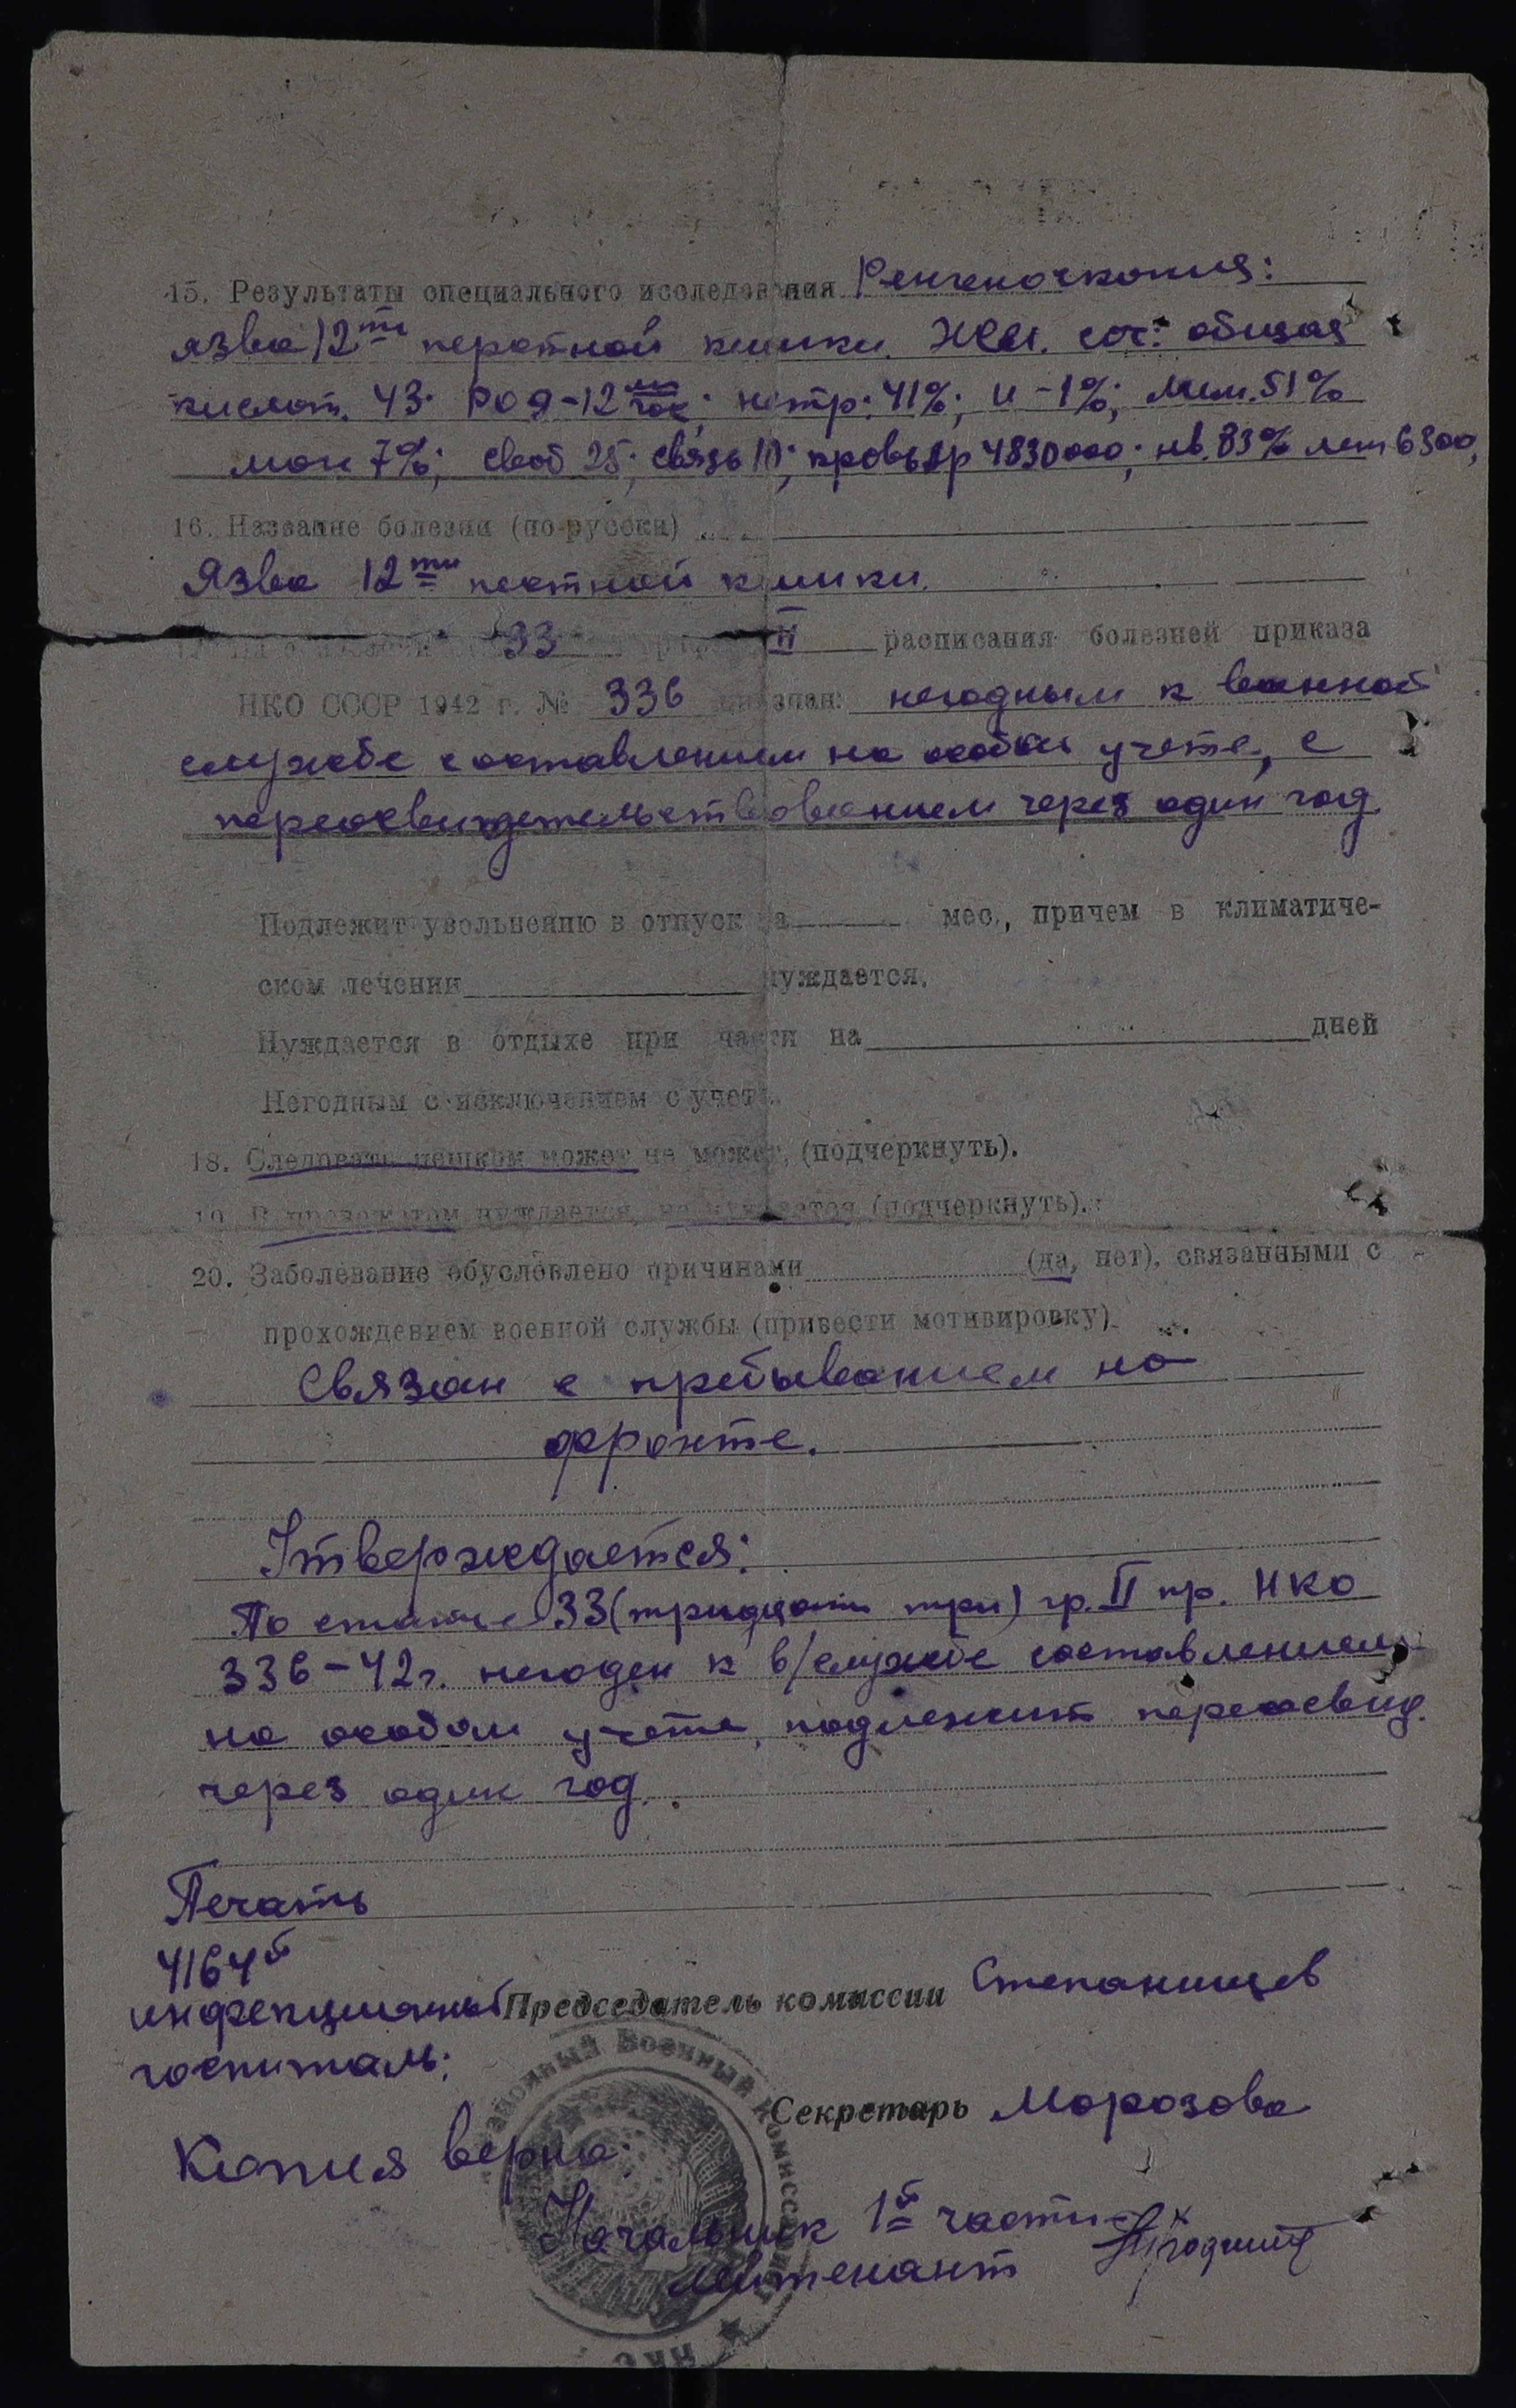 15. Результаты специального исследования Ренгеноскопия:
язва 12ти перстной кишки. Жел. сок: общая
кислот. 43. РОЭ-12 мм/час; нетр: 41%; ю -1%; лим. 51%
мон 7%; своб 25; связь 10; кровь эр 4830000; нв. 83% лей 6300,
16. Название болезни (по-русски)
Язва 12ти пестной кишки.
33 II расписания болезней приказа
НКО СССР 1942 г. № 336 признан: негодным к военной
службе с оставлением на особом учете, с
переосвидетельствованием через один год
Подлежит увольнению в отпуск на мес., причем в климатиче-
ском лечении нуждается.
Нуждается в отдыхе при части на дней
Негодным с исключением с учета.
18. Следовать пешком может не может, (подчеркнуть).
19. В провожатом нуждается, не нуждается (подчеркнуть).
20. Заболевание обусловлено причинами (да, нет), связанными с
прохождением военной службы (привести мотивировку)
Связан с пребыванием на
фронте.
Утверждается:
По статье 33 (тридцати три) гр. II пр. НКО
336-42г. негоден к в/службе с оставлением
на особом учете, подлежит переосвид.
через один год.
Печать
4164й
инфекционный Председатель комиссии Степанищев
госпиталь:
Секретарь Морозова
Копия верна:
Начальник 1й части
лейтенант
Районный Военный Комиссариат
НКО